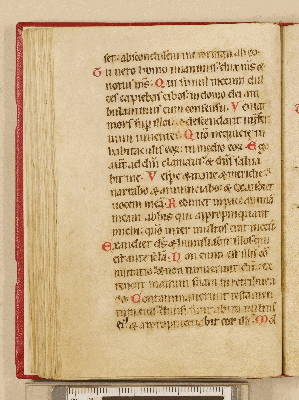 set: abscondissem me forsitan ab eo.
Tu vero homo unanimis: dux meus &
notus meus: Qui simul mecum dul
ces capiebas cibos: in domo dei am
bulavimus cum consensu. Veniat
mors super illos: & descendant in infer
num viventes. Quoniam nequicie in
habitaculis eorum: in medio eorum. Ego
autem ad deum clamavi: & dominus salva
bit me. Vespere & mane & meridie
narrabo & annunciabo: & exaudiet
vocem meam. Redimet in pace animam
meam ab his qui appropinquant
michi: quoniam inter multos erant mecum.
Exaudiet deus & humiliabit illos: qui
est ante secula. Non enim est illis co
mutatio & non timuerunt deum: ex
tendit manum suam in retribuen
do. Contaminaverunt testamen
tum eius: divisi sunt ab ira vultus
eius & appropinquabit cor illius. Mo